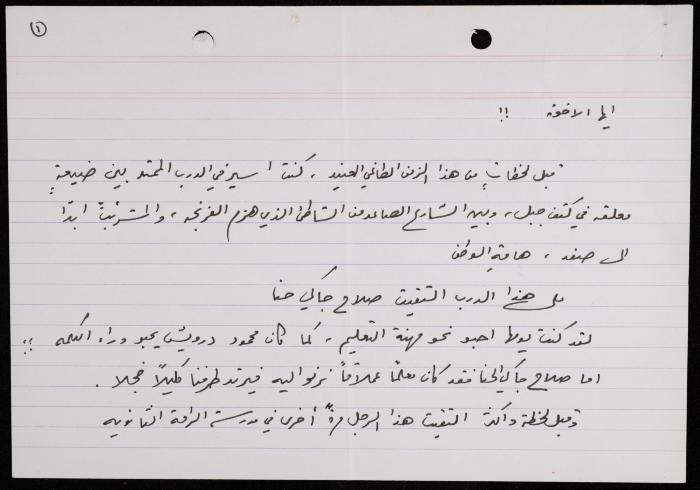 ١
ايها الاخوة !!
قبل لحظاتٍ من هذا الزمن الطاغي العنيد ، كنت اسير في الدرب الممتد بين ضيعةٍ
معلقه في كتف جبل ، وبين الشارع الصاعد من الشاطئ الذي هزم الفرنجه ، والمشرئبّ ابدًا
الى صفد ، هامةِ الوطن
على هذا الدرب التقيت صلاح جاكي حنا
لقد كنت يومها احبو نحو مهنة التعليم ، كما كان محمود درويش يحبو وراء الكلمه !!
اما صلاح جاكي الحنا فقد كان معلمًا عملاقاً نرنو اليه فيرتد طرفنا كليلاً خجلا .
وقبل لحظة واكثر التقيت هذا الرجل مرةً أخرى في مدرسة الرامة الثانويه